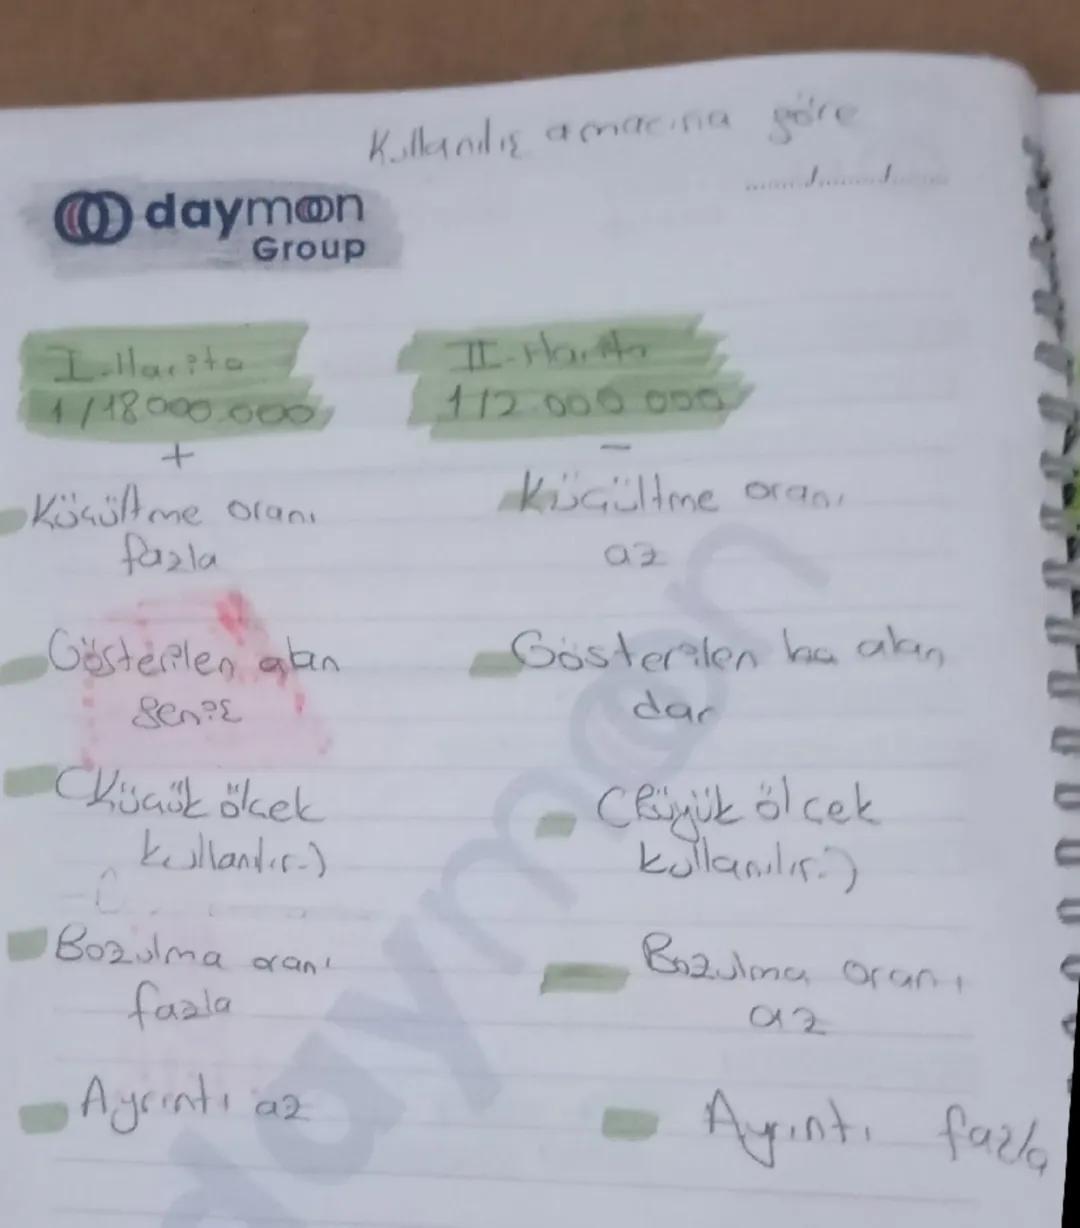 Kullanılış amacına göre
......./......./.......
daymoon
Group
I-Harita
1/18000.000
+
Küçültme oranı
fazla
Gösterilen alan
geniş
(Küçük ölçek
kullanılır.)
Bozulma oranı
fazla
Ayrıntı az
II-Harita
1/2.000.000
-
Küçültme oranı
az
Gösterilen ha alan
dar
(Büyük ölçek
kullanılır.)
Bozulma oranı
az
Ayrıntı fazla
daymoon